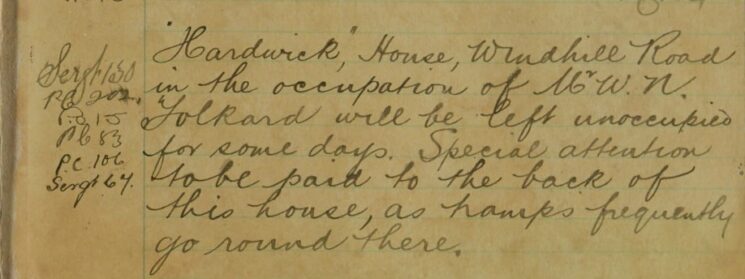 "Hardwick", House, Windhill Road
in the occupation of Mr W. N.
Folkard will be left unoccupied
for some days. Special attention
to be paid to the back of
this house, as tramps frequently
go round there.
Sergt 130
P.C. 202.
P.C. 15
P.C. 83
P.C. 106
Sergt. 67.